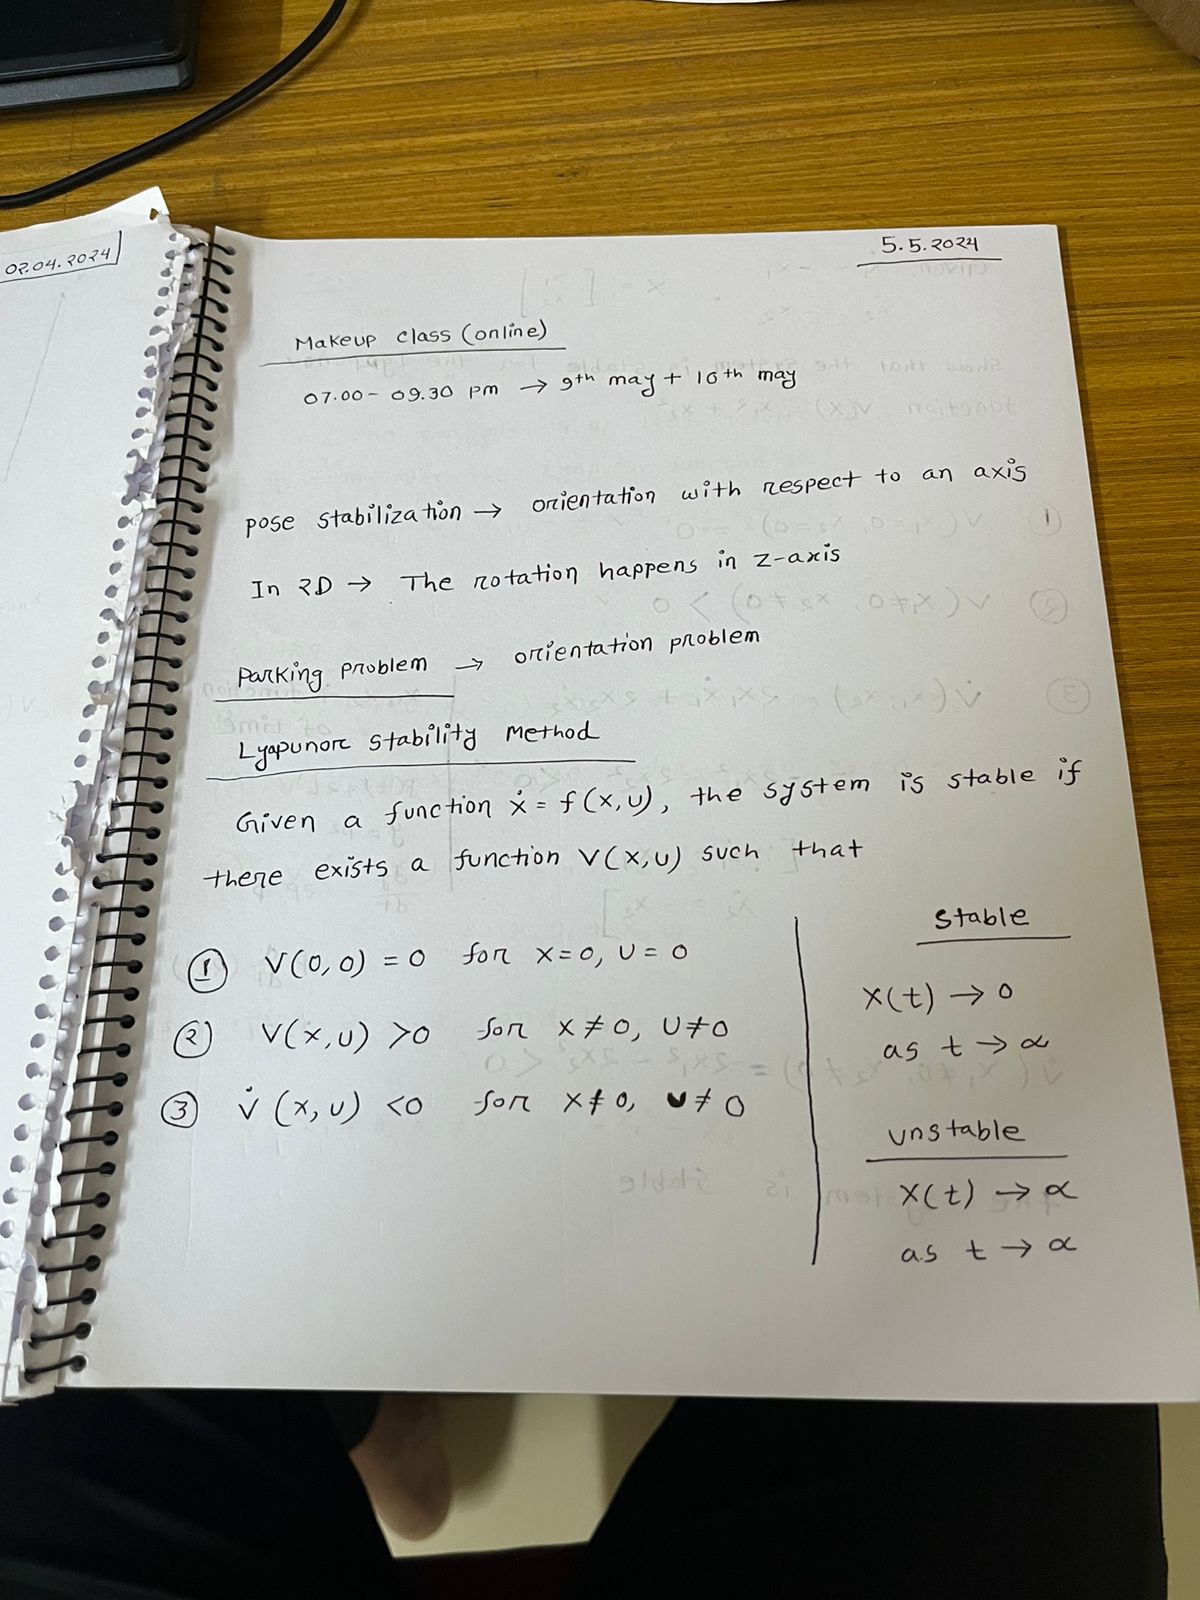 02.04.2024
5.5.2024
Makeup class (online)
07.00 - 09.30 pm → 9th may + 10th may
pose stabilization → orientation with respect to an axis
In 2D → The rotation happens in z-axis
Parking problem → orientation problem
Lyapunov stability Method
Given a function ẋ = f(x,u), the system is stable if
there exists a function V(x,u) such that
① V(0,0) = 0 for x=0, u=0
② V(x,u) >0 for x≠0, u≠0
③ V̇ (x,u) <0 for x≠0, u≠0
stable
x(t) → 0
as t → ∝
unstable
x(t) → ∝
as t → ∝